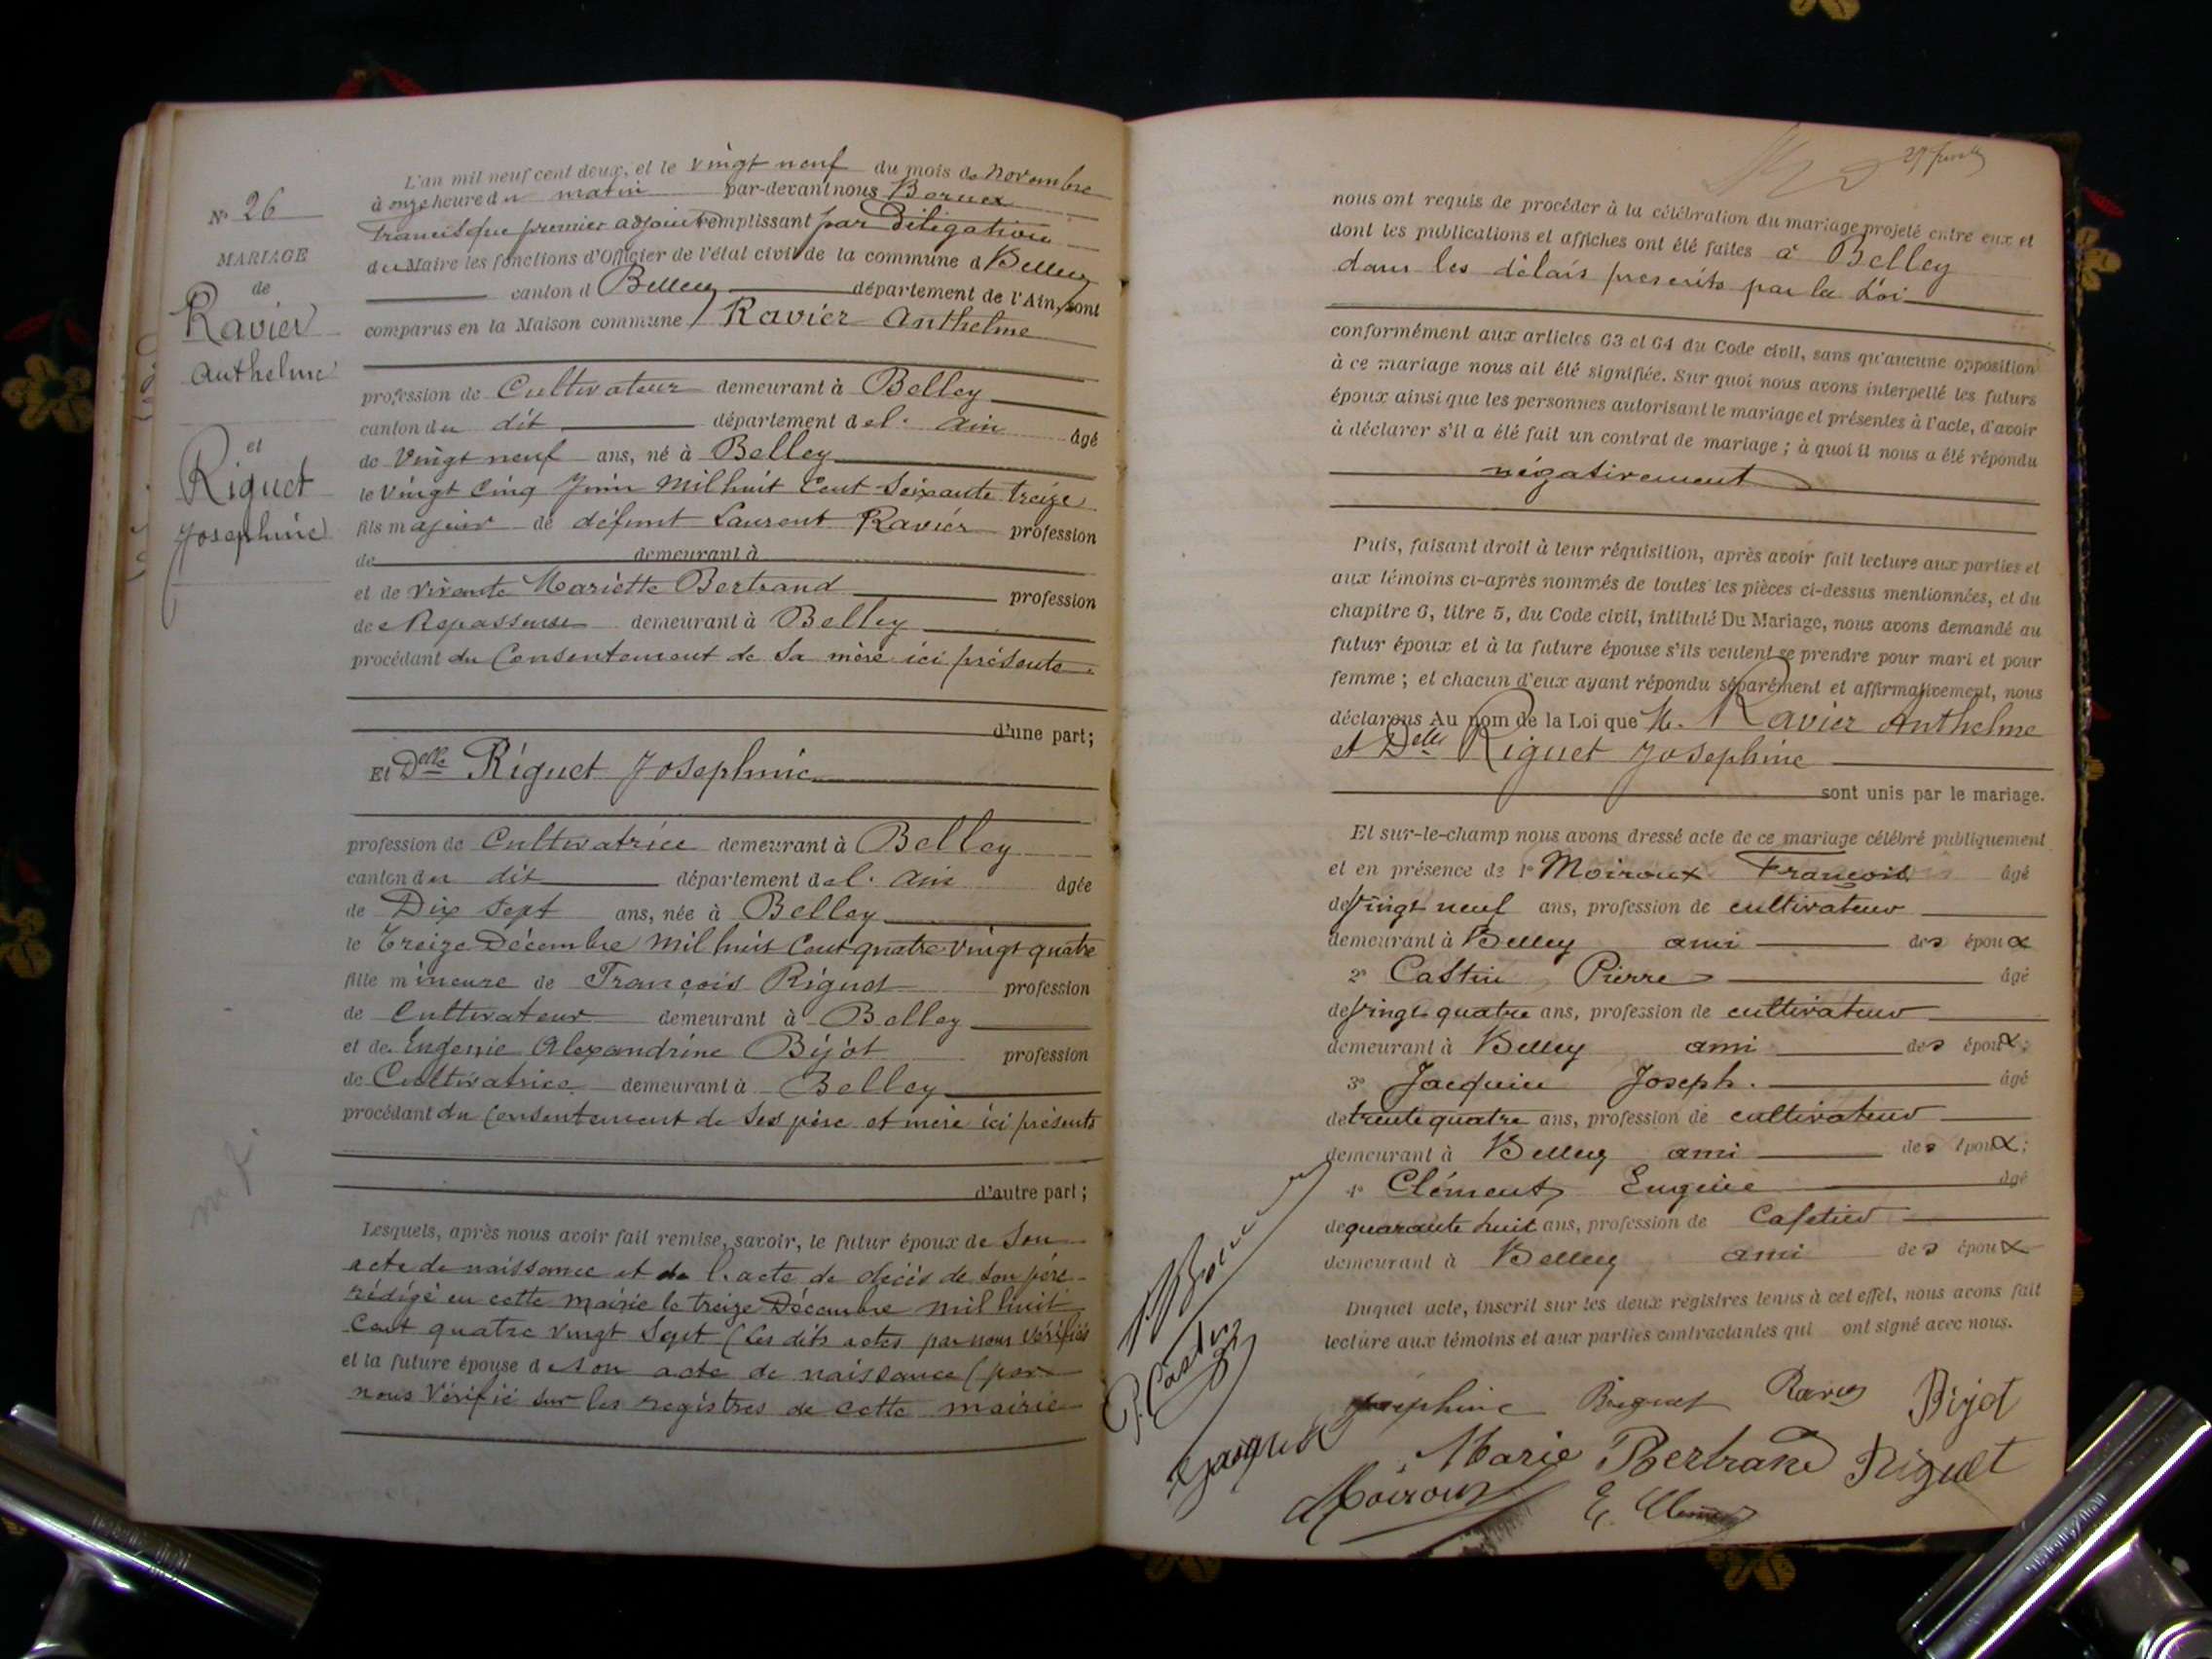 N° 26
MARIAGE
de
Ravier
Anthelme
et
Riguet
Josephine
L'an mil neuf cent deux, et le vingt neuf du mois de Novembre
à onze heure du matin par-devant nous
Francisque premier adjoint remplissant par Déligation
du Maire les fonctions d'Officier de l'état civil de la commune d Belley
canton d Belley département de l'Ain, sont
comparus en la Maison commune Ravier Anthelme
profession de Cultivateur demeurant à Belley
canton du dit département de l'Ain âgé
de Vingt neuf ans, né à Belley
le Vingt Cinq Juin Mil huit Cent Soixante treize
fils majeur de défunt Laurent Ravier profession
de demeurant à
et de vivante Mariette Bertrand profession
de Repasseuse demeurant à Belley
procédant du Consentement de sa mère ici présente
d'une part;
Et Delle Riguet Josephine
profession de Cultivatrice demeurant à Belley
canton du dit département de l'Ain âgée
de Dix sept ans, née à Belley
le Treize Décembre Mil huit Cent quatre Vingt quatre
fille mineure de François Riguet profession
de Cultivateur demeurant à Belley
et de Eugenie Alexandrine Bijot profession
de Cultivatrice demeurant à Belley
procédant du Consentement de ses père et mère ici présents
d'autre part;
Lesquels, après nous avoir fait remise, savoir, le futur époux de Son
acte de naissance et de l'acte de décès de son père
rédigé en cette Mairie le treize Décembre mil huit
Cent quatre vingt Sept (les dits actes par nous Vérifiés
et la future épouse de son acte de naissance (par
nous Vérifié sur les registres de cette mairie
nous ont requis de procéder à la célébration du mariage projeté entre eux et
dont les publications et affiches ont été faites à Belley
dans les délais prescrits par la Loi
conformément aux articles 63 et 64 du Code civil, sans qu'aucune opposition
à ce mariage nous ait été signifiée. Sur quoi nous avons interpellé les futurs
époux ainsi que les personnes autorisant le mariage et présentes à l'acte, d'avoir
à déclarer s'il a été fait un contrat de mariage; à quoi il nous a été répondu
négativement
Puis, faisant droit à leur réquisition, après avoir fait lecture aux parties et
aux témoins ci-après nommés de toutes les pièces ci-dessus mentionnées, et du
chapitre 6, titre 5, du Code civil, intitulé Du Mariage, nous avons demandé au
futur époux et à la future épouse s'ils veulent se prendre pour mari et pour
femme; et chacun d'eux ayant répondu séparément et affirmativement, nous
déclarons Au nom de la Loi que M. Ravier Anthelme
et Delle Riguet Josephine
sont unis par le mariage.
Et sur-le-champ nous avons dressé acte de ce mariage célébré publiquement
et en présence de 1° Moiroux François âgé
de vingt neuf ans, profession de cultivateur
demeurant à Belley ami des époux
2° Castin Pierre âgé
de vingt quatre ans, profession de cultivateur
demeurant à Belley ami des époux;
3° Jacquin Joseph. âgé
de trente quatre ans, profession de cultivateur
demeurant à Belley ami des époux;
4° Clément Eugène âgé
de quarante huit ans, profession de Cafetier
demeurant à Belley ami des époux
Duquel acte, inscrit sur les deux registres tenus à cet effet, nous avons fait
lecture aux témoins et aux parties contractantes qui ont signé avec nous.
Josephine Riguet Ravier Bijot
Marie Bertrand Riguet
P. Castin
Jacquin
Moiroux E. Clément